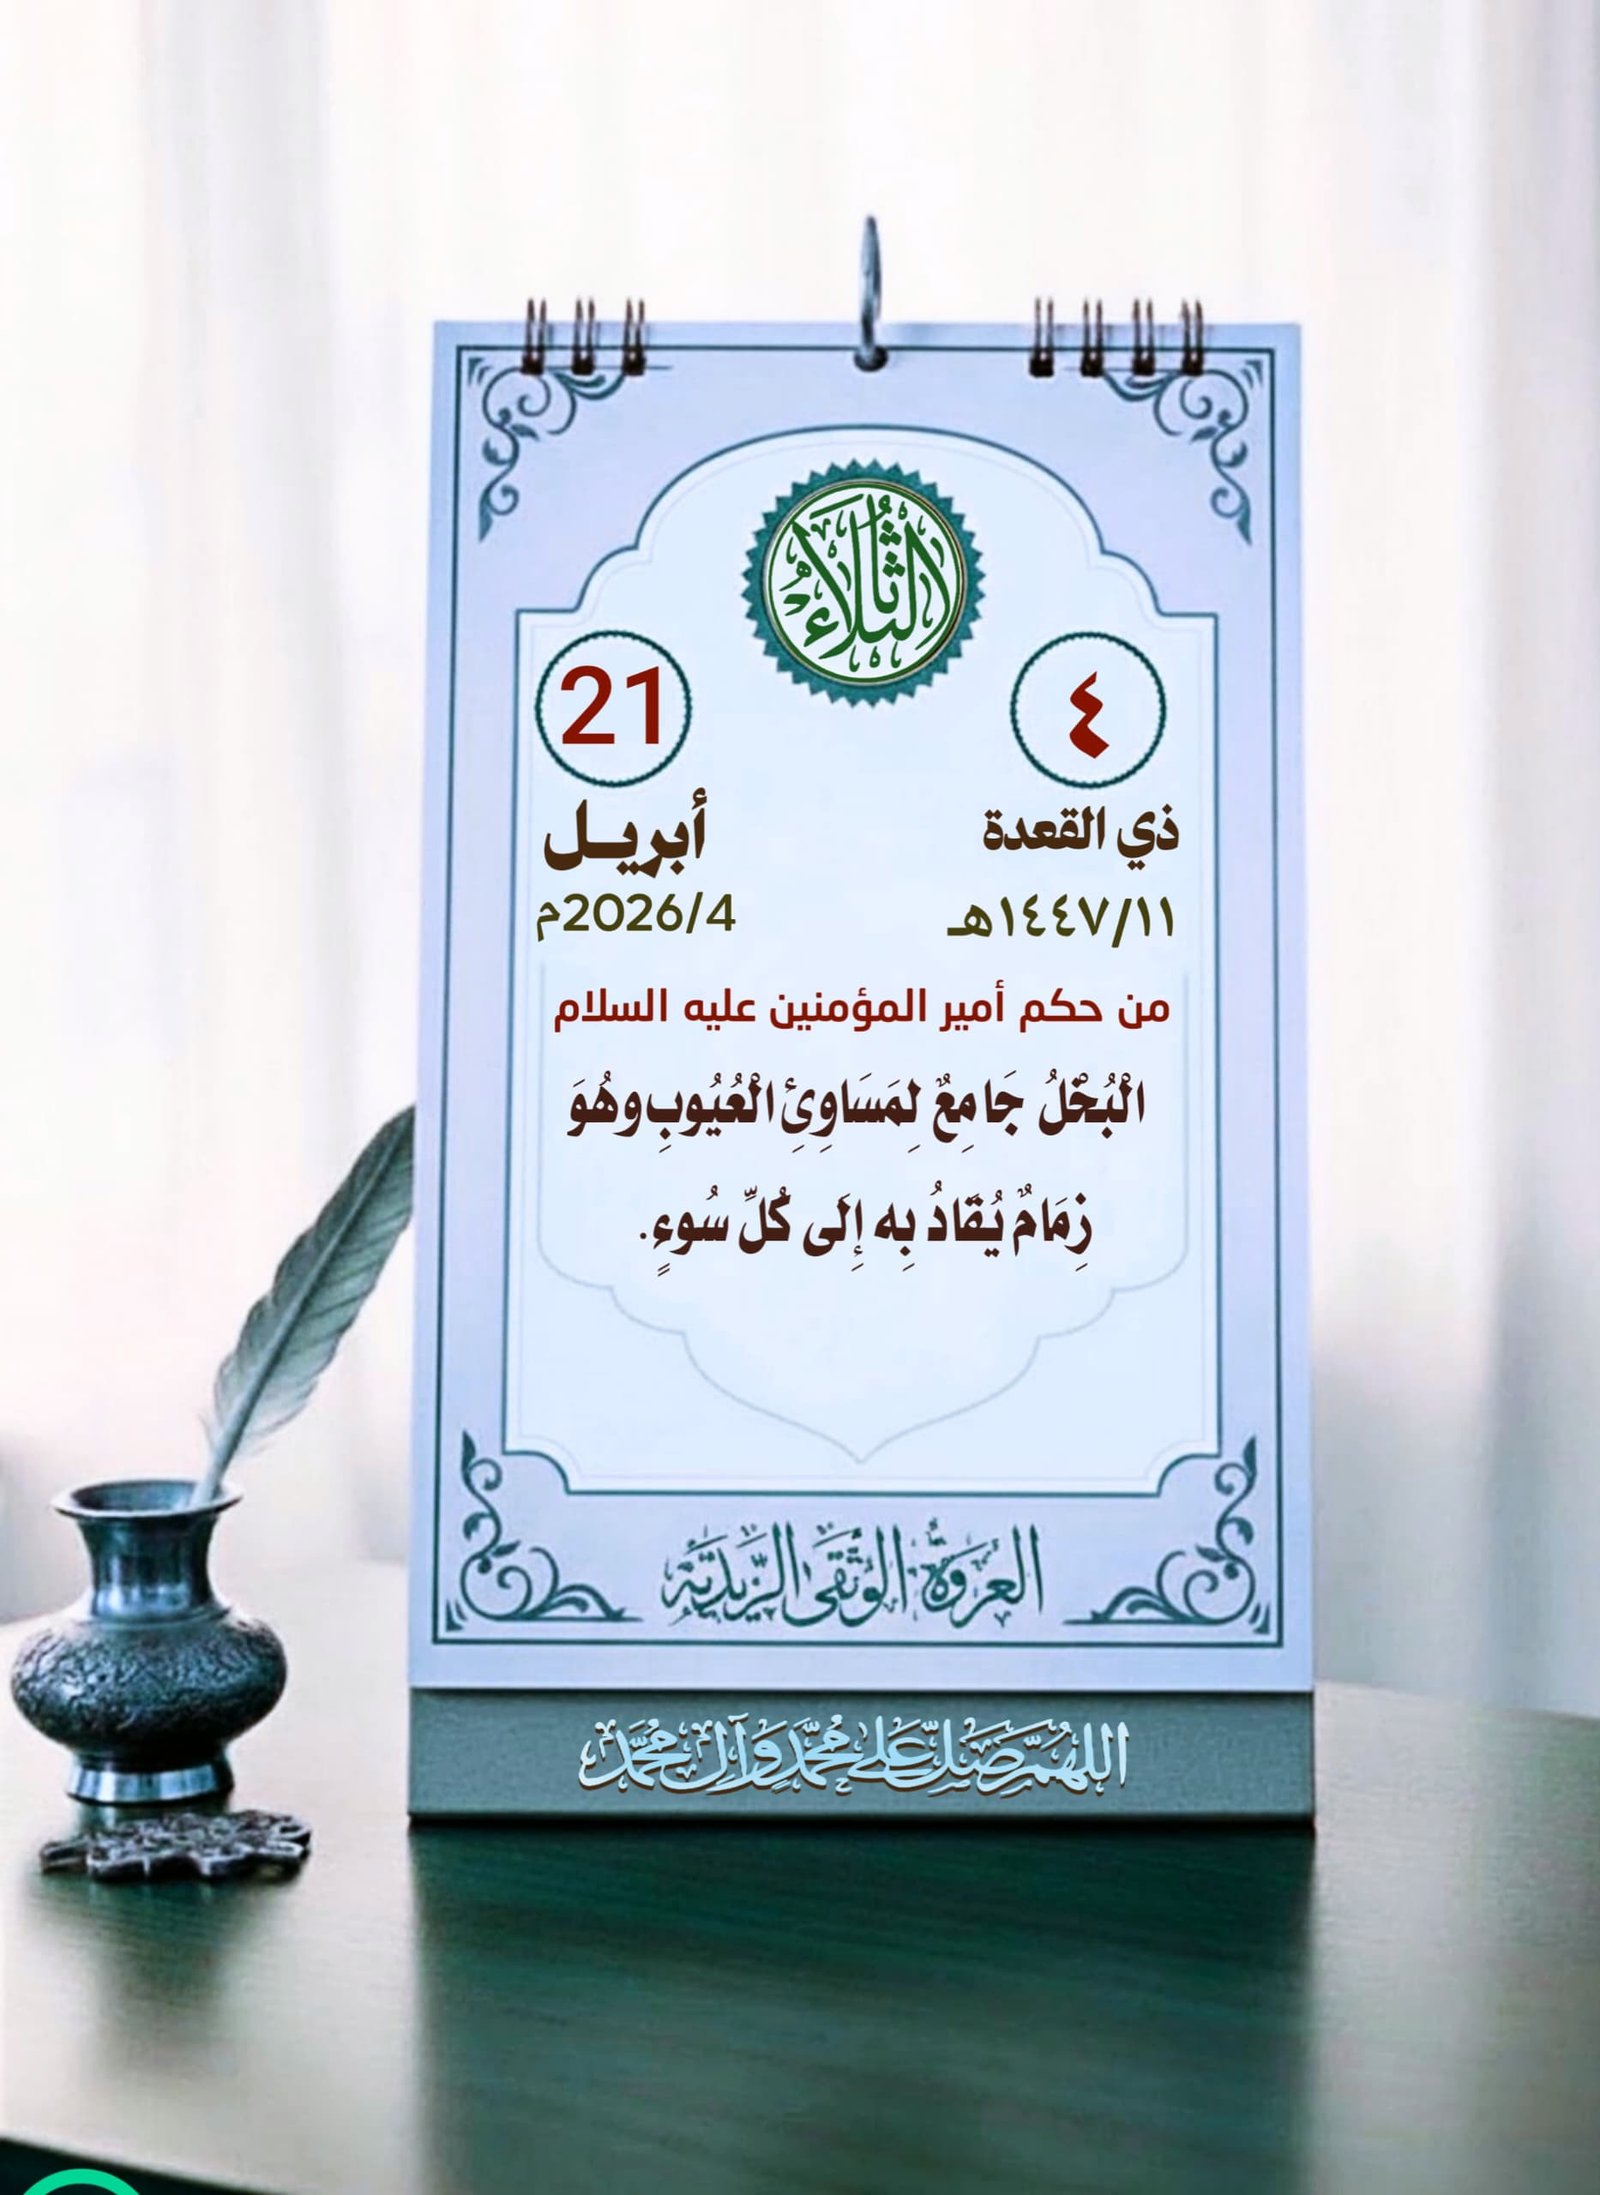 الثُّلَاثَاءُ
٤
21
ذي القعدة
أبريـل
١٤٤٧/١١هـ
2026/4م
من حكم أمير المؤمنين عليه السلام
الْبُخْلُ جَامِعٌ لِمَسَاوِئِ الْعُيُوبِ وهُوَ
زِمَامٌ يُقَادُ بِه إِلَى كُلِّ سُوءٍ.
العروة الوثقى الزيدية
اللهم صل على محمد وآل محمد